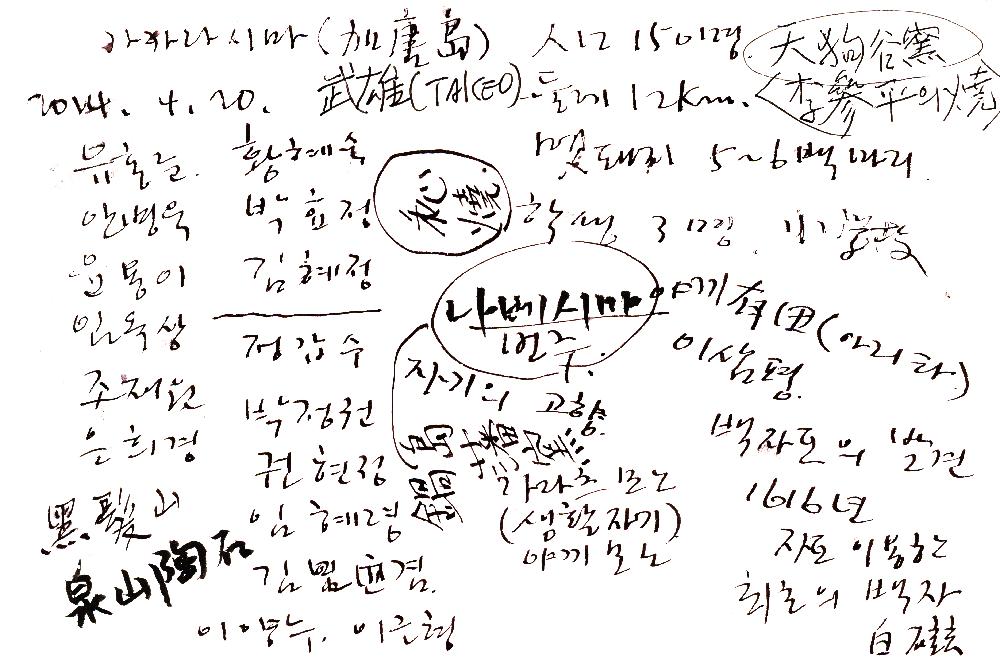 가카라시마(加唐島) 人口 150명.
天狗谷窯
2014. 4. 20. 武雄(TAKEO) 둘레 12km.
(李參平의 燒)
유홍준. 황혜숙
멧돼지 5~6백마리.
안병욱 박효정
학생 3명. 小学校
윤용이 김혜정
임옥상 정갑수
나베시마
야끼 有田(아리타)
이삼평.
조재원 박정권
자기의 고향.
은희경 권현정
백자토의 발견
黑髮山 임혜령
鍋島
가라츠모노
(생활자기)
야끼모노
1616년
泉山陶石
자토 이용한
최초의 백자
白磁
이근형